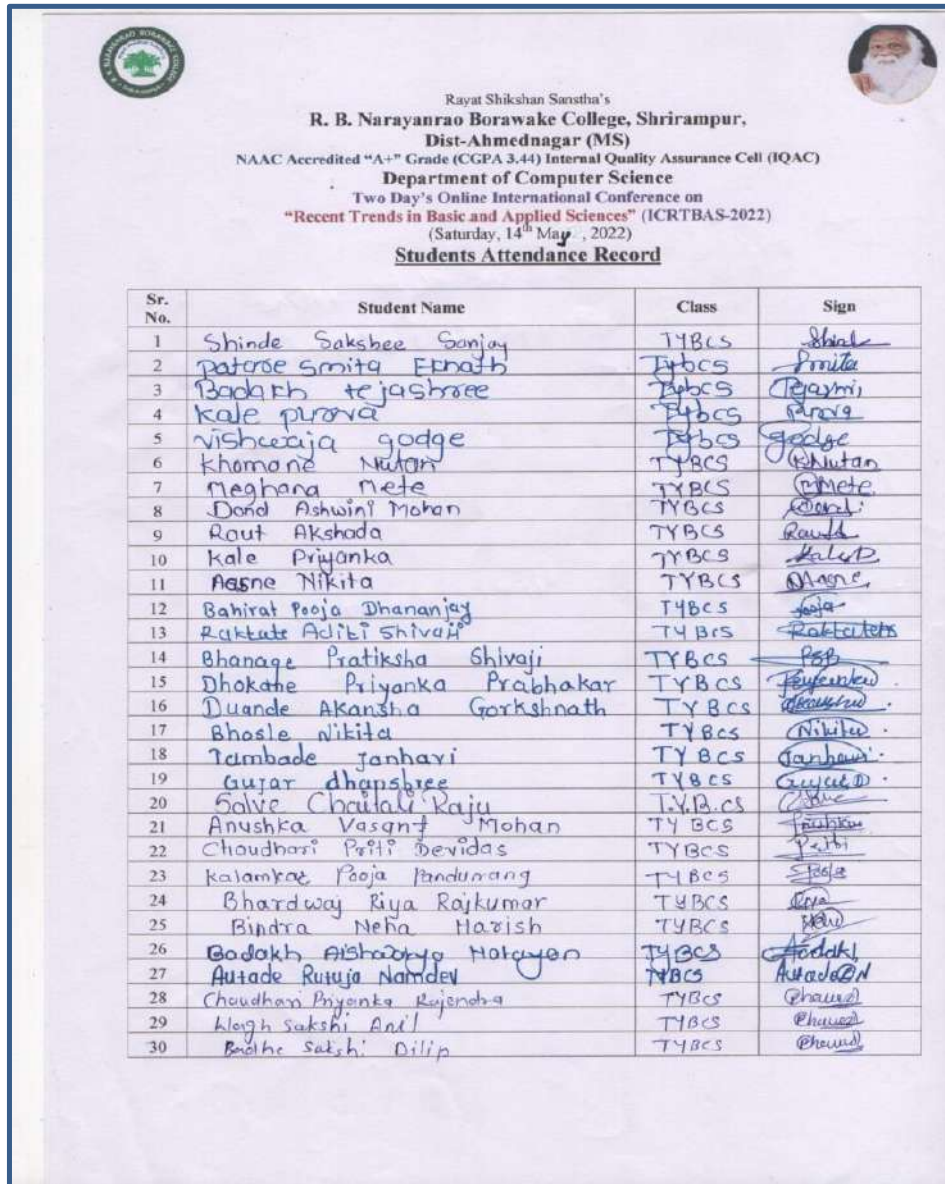 Rayat Shikshan Sanstha's
R. B. Narayanrao Borawake College, Shrirampur,
Dist-Ahmednagar (MS)
NAAC Accredited "A+" Grade (CGPA 3.44) Internal Quality Assurance Cell (IQAC)
Department of Computer Science
Two Day's Online International Conference on
"Recent Trends in Basic and Applied Sciences" (ICRTBAS-2022)
(Saturday, 14th May, 2022)
Students Attendance Record
Sr. No. Student Name Class Sign
1 Shinde Sakshee Sanjay TYBCS
2 Patare Smita Eknath Tybcs Smita
3 Badakh tejashree Tybcs
4 Kale purva Tybcs Purva
5 godge Tybcs godge
6 Khomane Nutan TYBCS KNutan
7 Meghana Mete TYBCS Mete
8 Dond Ashwini Mohan TYBCS
9 Raut Akshada TYBCS
10 Kale Priyanka TYBCS
11 Nikita TYBCS
12 Bahirat Pooja Dhananjay TYBCS Pooja
13 Raktate Aditi Shivaji TYBCS
14 Bhanage Pratiksha Shivaji TYBCS
15 Dhokane Priyanka Prabhakar TYBCS
16 Duande Akansha Gorkshnath TYBCS
17 Bhosle Nikita TYBCS Nikita
18 Tambade Janhavi TYBCS Janhavi
19 Gujar dhanshree TYBCS Gujar D
20 Salve Chaitali Raju T.Y.B.cs
21 Anushka Vasant Mohan TYBCS
22 Choudhari Priti Devidas TYBCS
23 Kalamkar Pooja Pandurang TYBCS
24 Bhardwaj Riya Rajkumar TYBCS Riya
25 Bindra Neha Harish TYBCS
26 Badakh TYBCS
27 Autade Rutuja Namdev TYBCS
28 Chaudhari Priyanka Rajendra TYBCS
29 Wagh Sakshi Anil TYBCS
30 Sakshi Dilip TYBCS